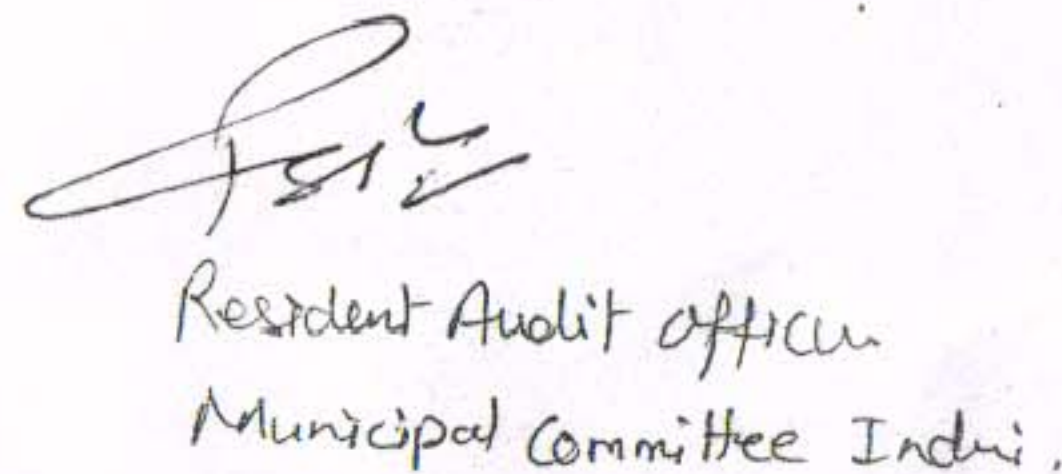 Resident Audit Officer
Municipal Committee Indri.